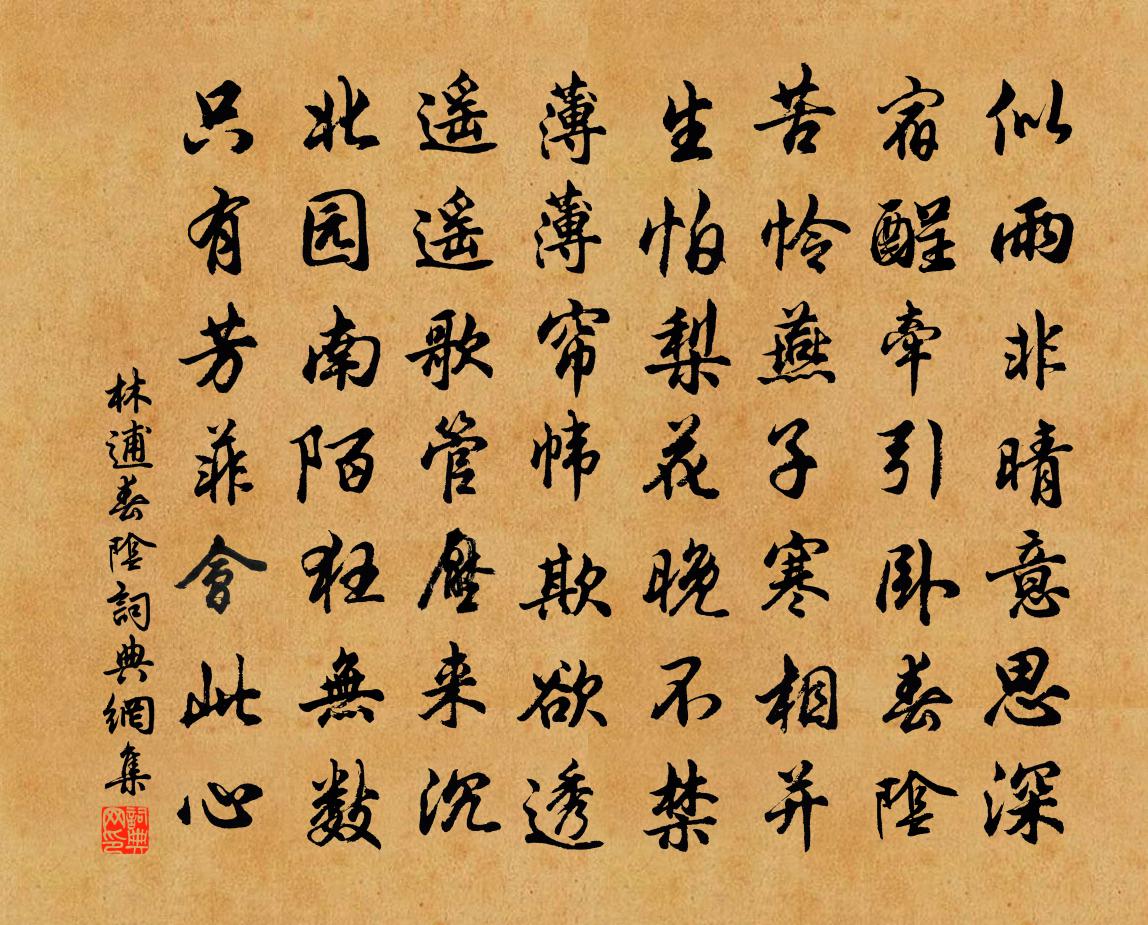 似雨非晴意思深
宿酲牵引卧春陰
苦怜燕子寒相并
生怕梨花晚不禁
薄薄帘帏欺欲透
遥遥歌管壓来沉
北园南陌狂無數
只有芳菲會此心
林逋春陰詞典網集
詞典网印